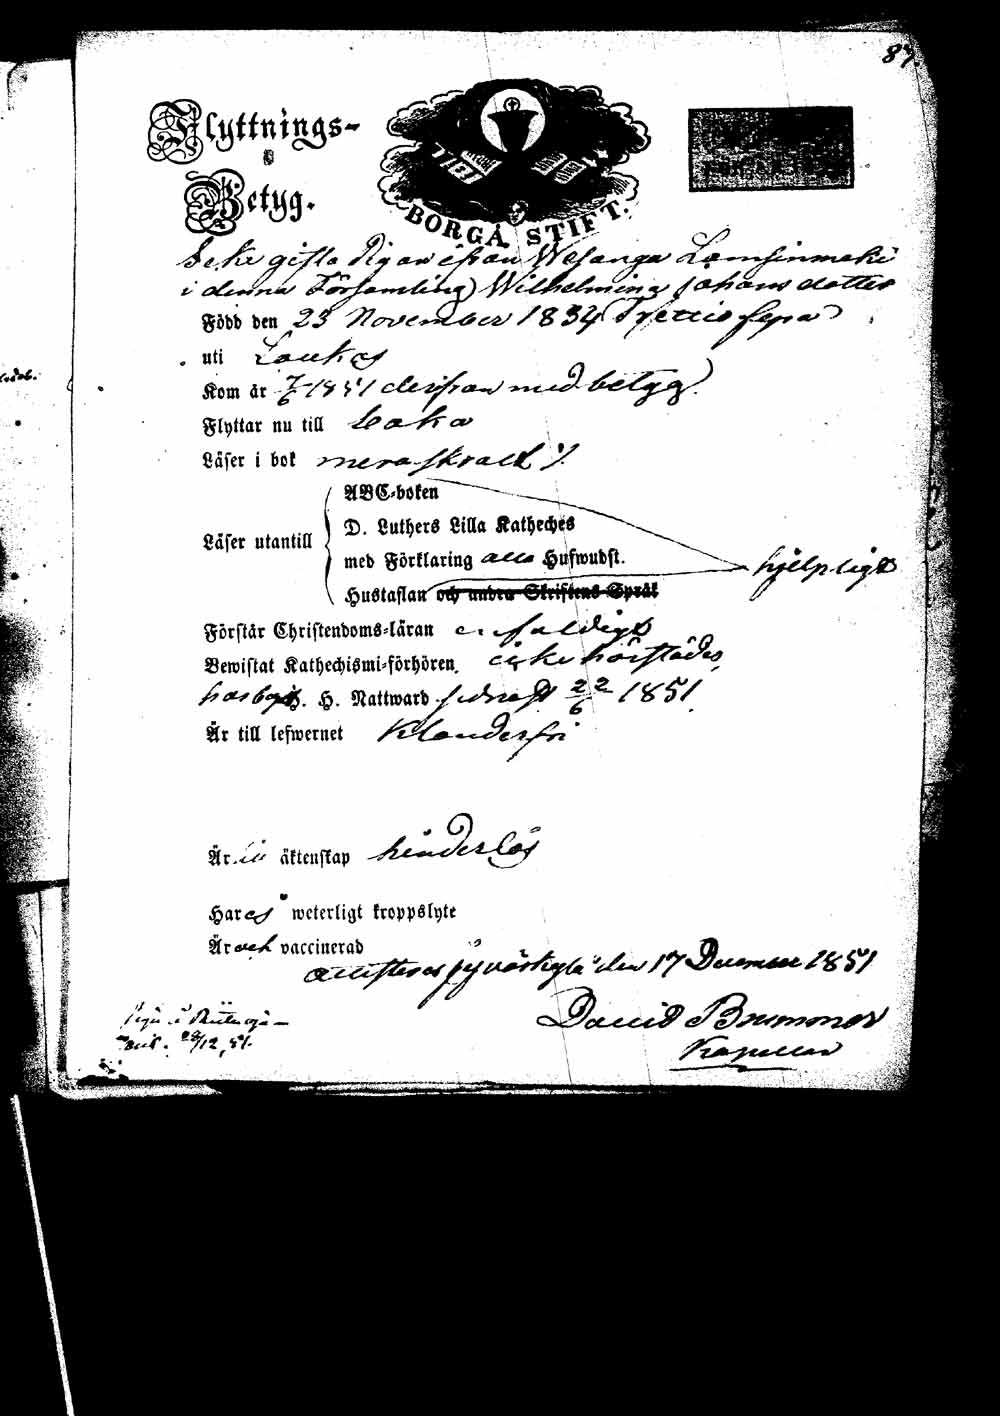 87.
Flyttnings-
Betyg.
BORGÅ STIFT.
gifta Pigan ifrån Wesanga Lamsinmäki
i denna Församling Wilhelmina Johansdotter
Född den 23 November 1834 (Trettio fyra)
uti Laukas
Kom år 7/6 1851 derifrån med betyg.
Flyttar nu till
Läser i bok
ABC-boken
D. Luthers Lilla Katheches
Läser utantill
med Förklaring alla Hufwudst.
hjelpligt
Hustaflan och andra Skriftens Språk
Förstår Christendoms-läran enfaldigt
Bewistat Kathechismi-förhören, icke härstädes,
H. H. Nattward sednast 22/6 1851.
Är till lefwernet Klanderfri
Är till äktenskap hinderlös
Har ej weterligt kroppslyte
Är och vaccinerad
den 17 December 1851
David Brummer
Kapellan
20/12, 51.